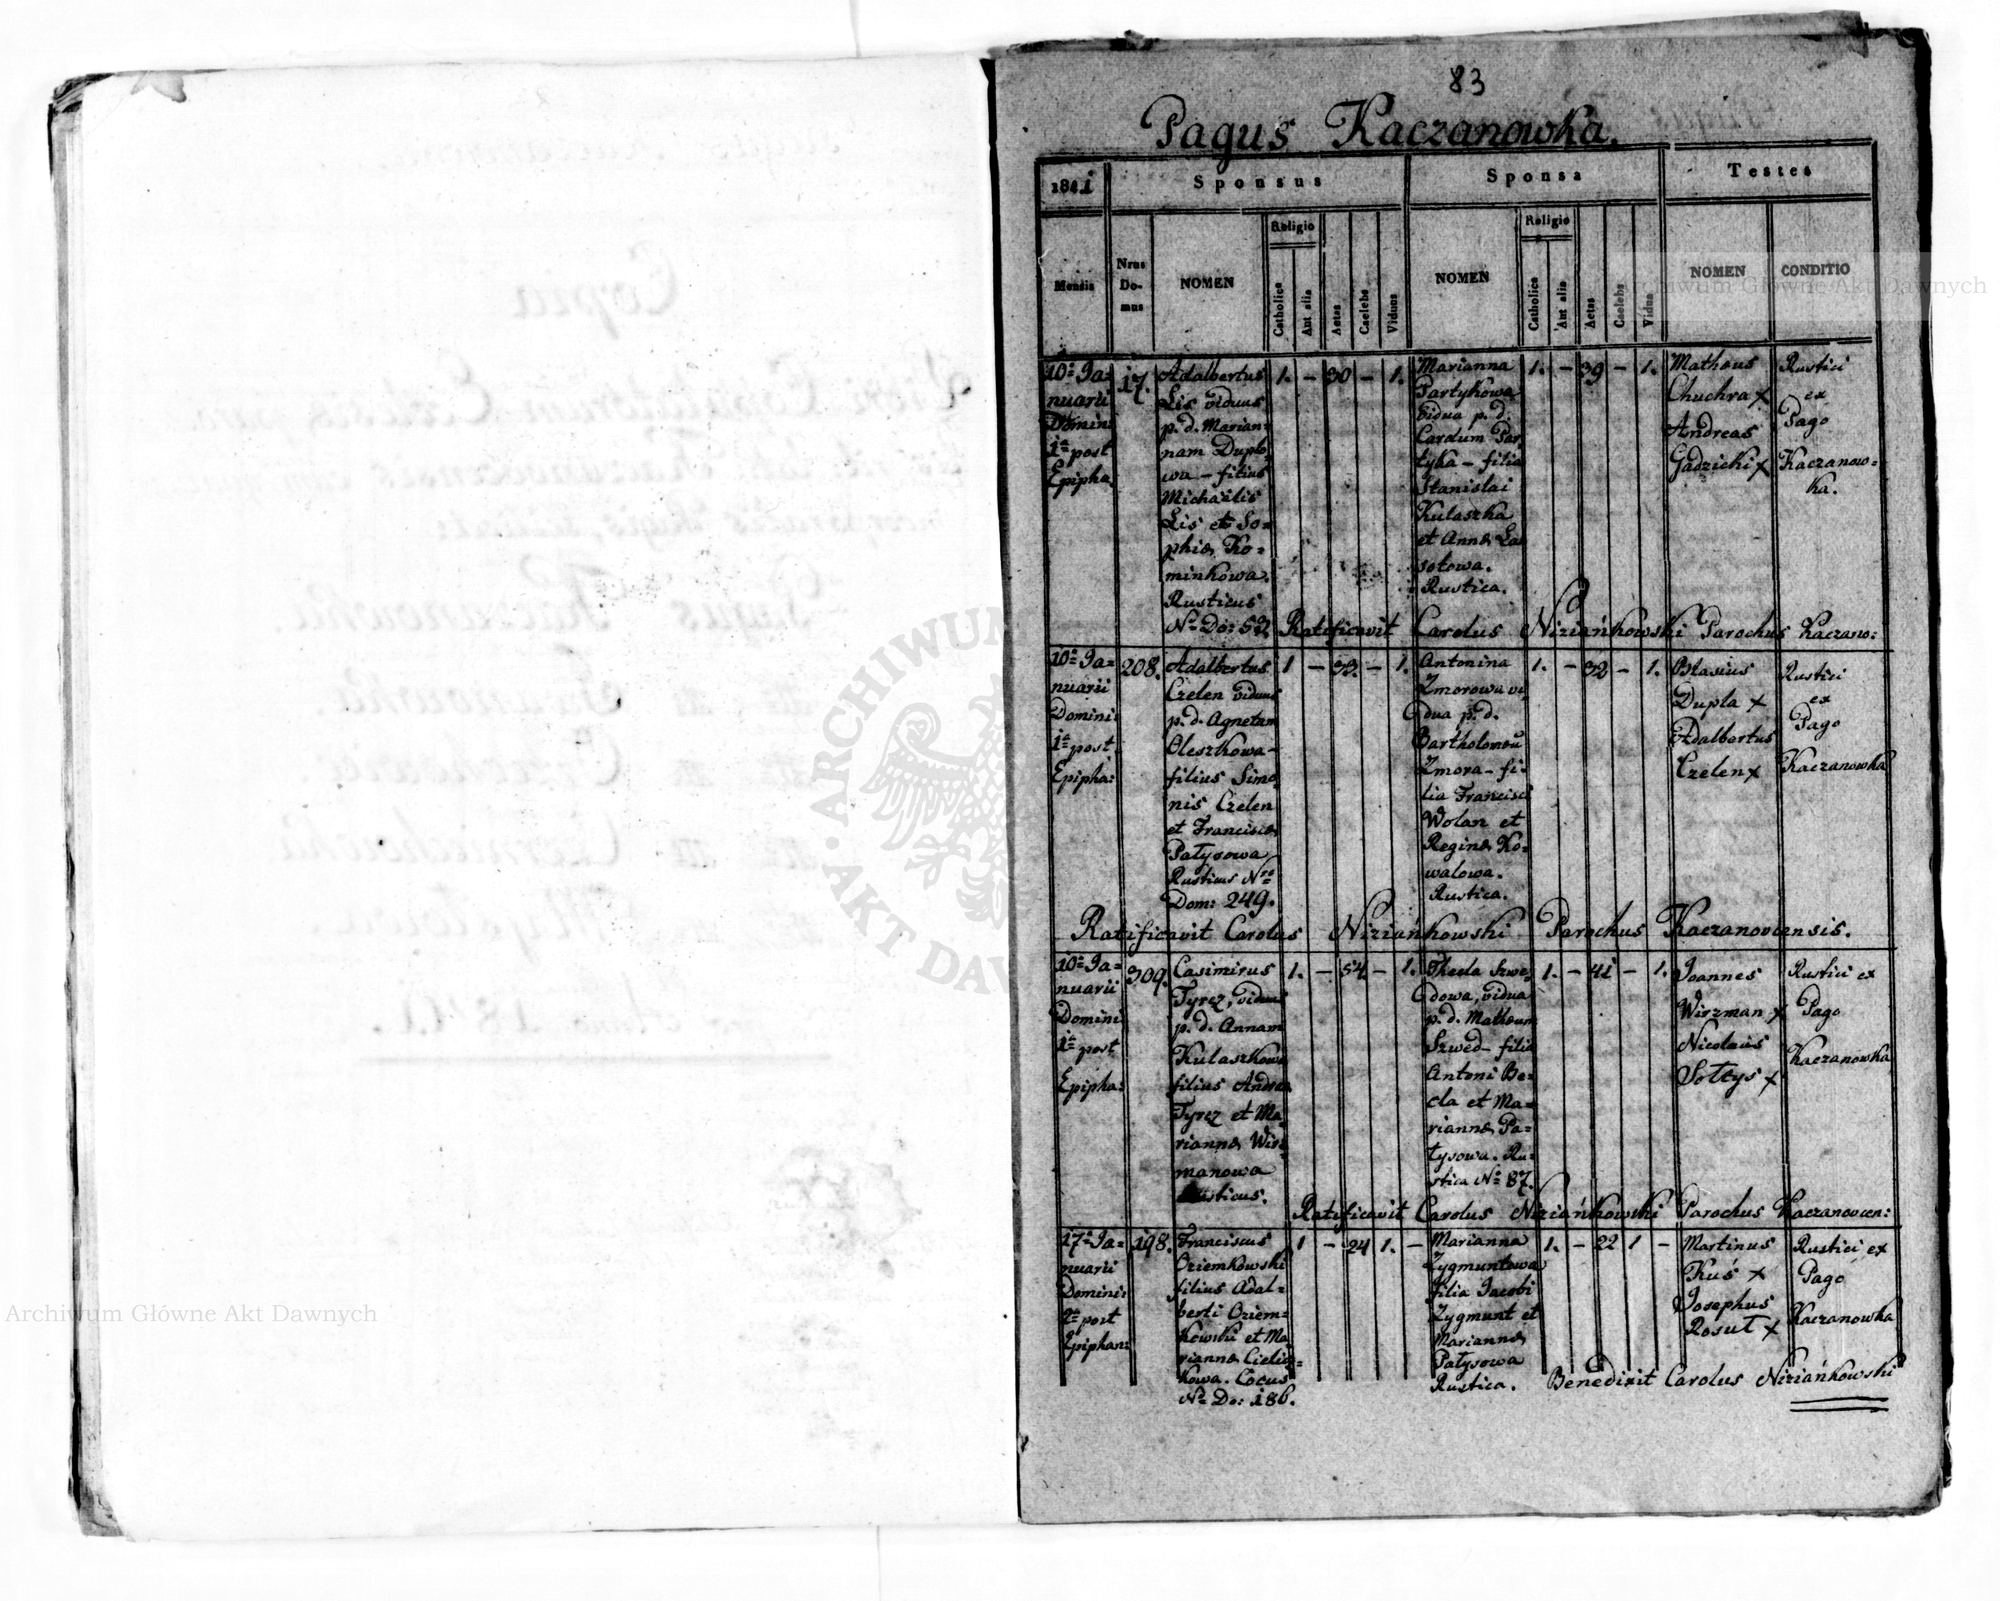 83
Pagus Kaczanowka.
1841 Sponsus Sponsa Testes
Mensis Nrus Domus NOMEN Religio Catholica Aut alia Aetas Caelebs Viduus NOMEN Religio Catholica Aut alia Aetas Caelebs Vidua NOMEN CONDITIO
10a Ja=
nuarii
Domin:
1a post
Epipha:
17.
Adalbertus
Lis viduus
p. d. Marian=
nam Duplo=
wa – filius
Michaëlis
Lis et So=
phiae Ko=
minkowa.
Rusticus
No Do: 52
1. – 30 – 1.
Marianna
Partykowa
vidua p. d.
Carolum Par
tyka – filia
Stanislai
Kulaszka
et Annae La
sotowa.
Rustica.
1. – 39 – 1.
Matheus
Chuchra x
Andreas
Gadzicki x
Rustici
ex
Pago
Kaczanow=
ka.
Ratificavit Carolus Niziańkowski Parochus Kaczano:
10a Ja=
nuarii
Domini:
1a post
Epipha:
208.
Adalbertus
Czelen viduus
p. d. Agnetam
Oleszkowa –
filius Simo
nis Czelen
et Franciscae
Patysowa
Rusticus Nro
Dom: 249.
1 – 33. – 1.
Antonina
Zmorowa vi
dua p. d.
Bartholomeu
Zmora – fi=
lia Francisci
Wolan et
Reginae Ko=
walowa.
Rustica.
1. – 32 – 1.
Blasius
Dupla x
Adalbertus
Czelen x
Rustici
ex
Pago
Kaczanowka
Ratificavit Carolus Niziańkowski Parochus Kaczanoviensis.
10a Ja=
nuarii
Domini:
1a post
Epipha:
309.
Casimirus
Tyrcz, viduus
p. d. Annam
Kulaszkowa
filius Andreae
Tyrcz et Ma
riannae Wirz
manowa
Rusticus.
1. – 54 – 1.
Thecla Szwe=
dowa, vidua
p. d. Matheum
Szwed – filia
Antoni Be=
cla et Ma=
riannae Pa=
tysowa. Ru=
stica No 87.
1. – 41 – 1.
Joannes
Wirzman x
Nicolaus
Sołtys x
Rustici ex
Pago
Kaczanowka
Ratificavit Carolus Niziańkowski Parochus Kaczanovien:
17a Ja=
nuarii
Domini:
2a post
Epiphan:
198.
Franciscus
Oziemkowski
filius Adal=
berti Oziem=
kowski et Ma
riannae
kowa. Cocus
No Do: 186.
1 – 24 1. –
Marianna
Zygmuntowa
filia Jacobi
Zygmunt et
Mariannae
Patysowa
Rustica.
1. – 22 1 –
Martinus
Kuś x
Josephus
Rosuł x
Rustici ex
Pago
Kaczanowka
Benedixit Carolus Niziańkowski
Archiwum Główne Akt Dawnych
Archiwum Główne Akt Dawnych